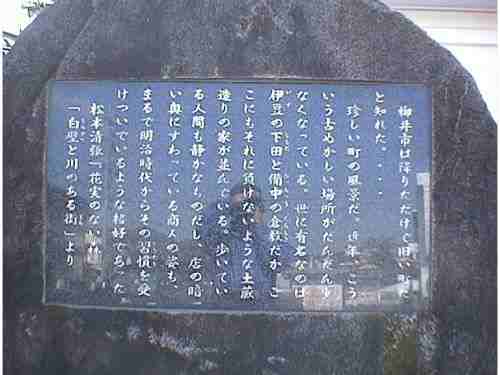 柳井市は降りただけで旧い町だ
と知れた。・・・
珍しい町の風景だ。近年、こう
いう古めかしい場所がだんだん少
なくなっている。世に有名なのは
伊豆の下田と備中の倉敷だが、こ
こにもそれに負けないような土蔵
造りの家が並んでいる。歩いてい
る人間も静かなものだし、店の暗
い奥にすわっている商人の姿も、
まるで明治時代からその習慣を受
けついでいるような恰好であった
松本清張「花実のない森」
「白壁と川のある街」より